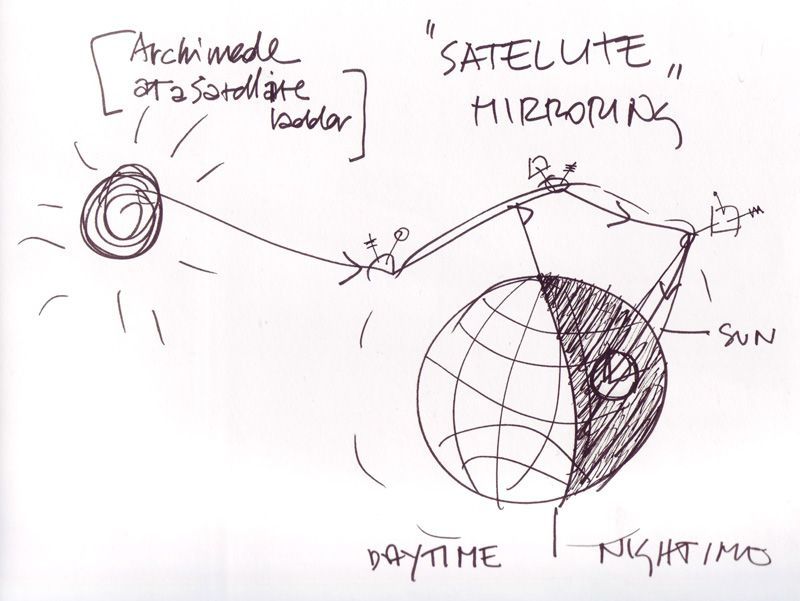 [Archimede
at a Satellite
ladder]
"SATELLITE"
MIRRORING
SUN
DAYTIME | NIGHTIME